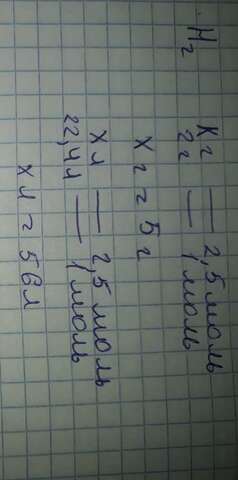 H₂
Xг — 2,5 моль
2г — 1 моль
Xг = 5 г
Xл — 2,5 моль
22,4л — 1 моль
Xл = 56л